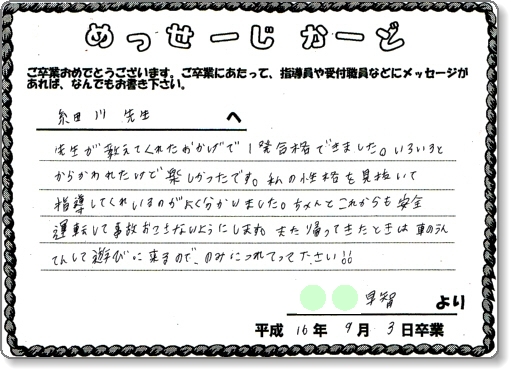 めっせーじ かーど
ご卒業おめでとうございます。ご卒業にあたって、指導員や受付職員などにメッセージが
あれば、なんでもお書き下さい。
糸田川 先生 へ
先生が教えてくれたおかげで1発合格できました。いろいろと
からかわれたけど楽しかったです。私の性格を見抜いて
指導してくれているのがよく分かりました。ちゃんとこれからも安全
運転して事故おこさないようにします。また帰ってきたときは車のうん
てんして遊びに来るので、のみにつれてって下さい!!
早智 より
平成 16 年 9 月 3 日卒業